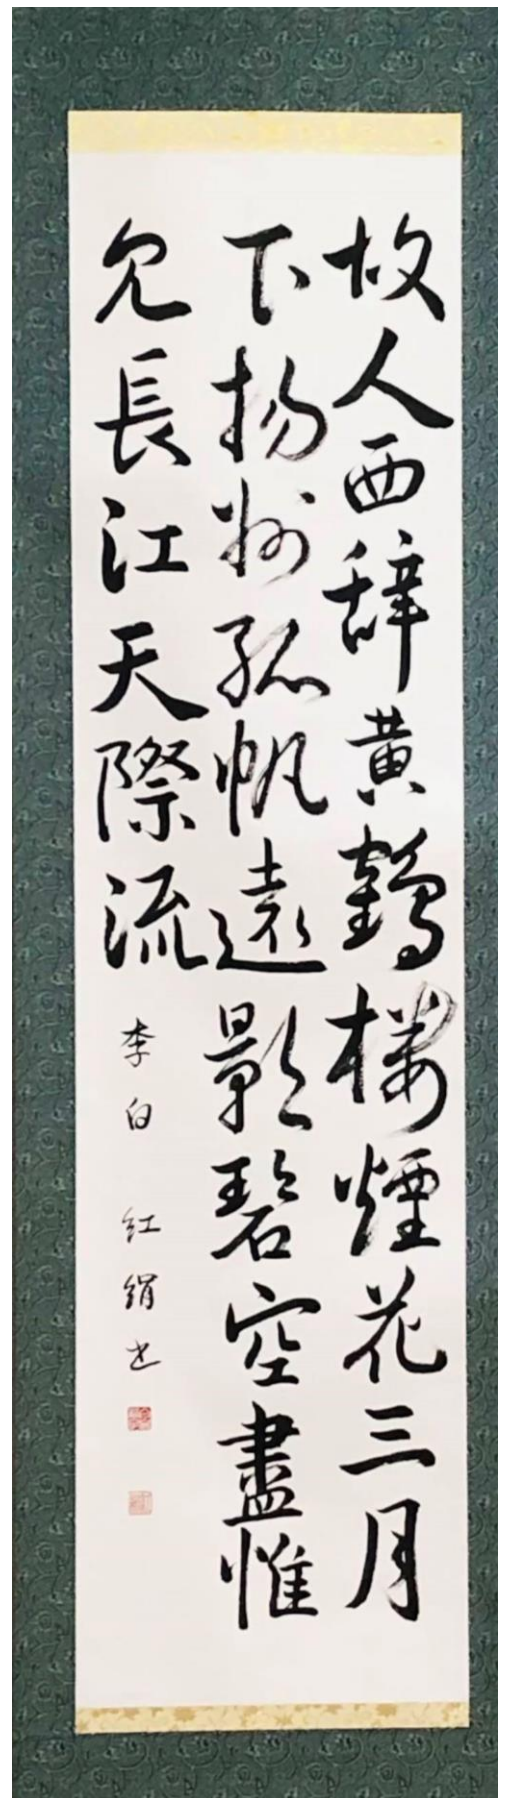 故人西辞黄鶴楼煙花三月
下揚州孤帆遠影碧空盡惟
見長江天際流
李白 紅絹書